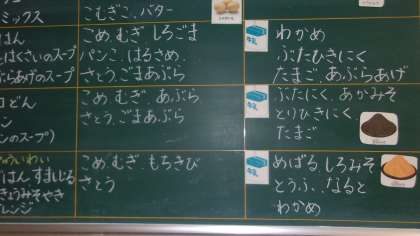 ミックス
こむぎこ、バター
はん
こめ むぎ しろごま
わかめ
はくさいのスープ
パンこ、はるさめ、
ぶたひきにく
ぶらあげのスープ
さとう、ごまあぶら
たまご、あぶらあげ
どん
こめ、むぎ、あぶら
ぶたにく、あかみそ
ン
さとう、ごまあぶら
とりひきにく
のスープ)
たまご
こめ、むぎ、もちきび
めばる、しろみそ
ごはん すましじる
さとう
とうふ、なると
きょうみそやき
わかめ
レンジ